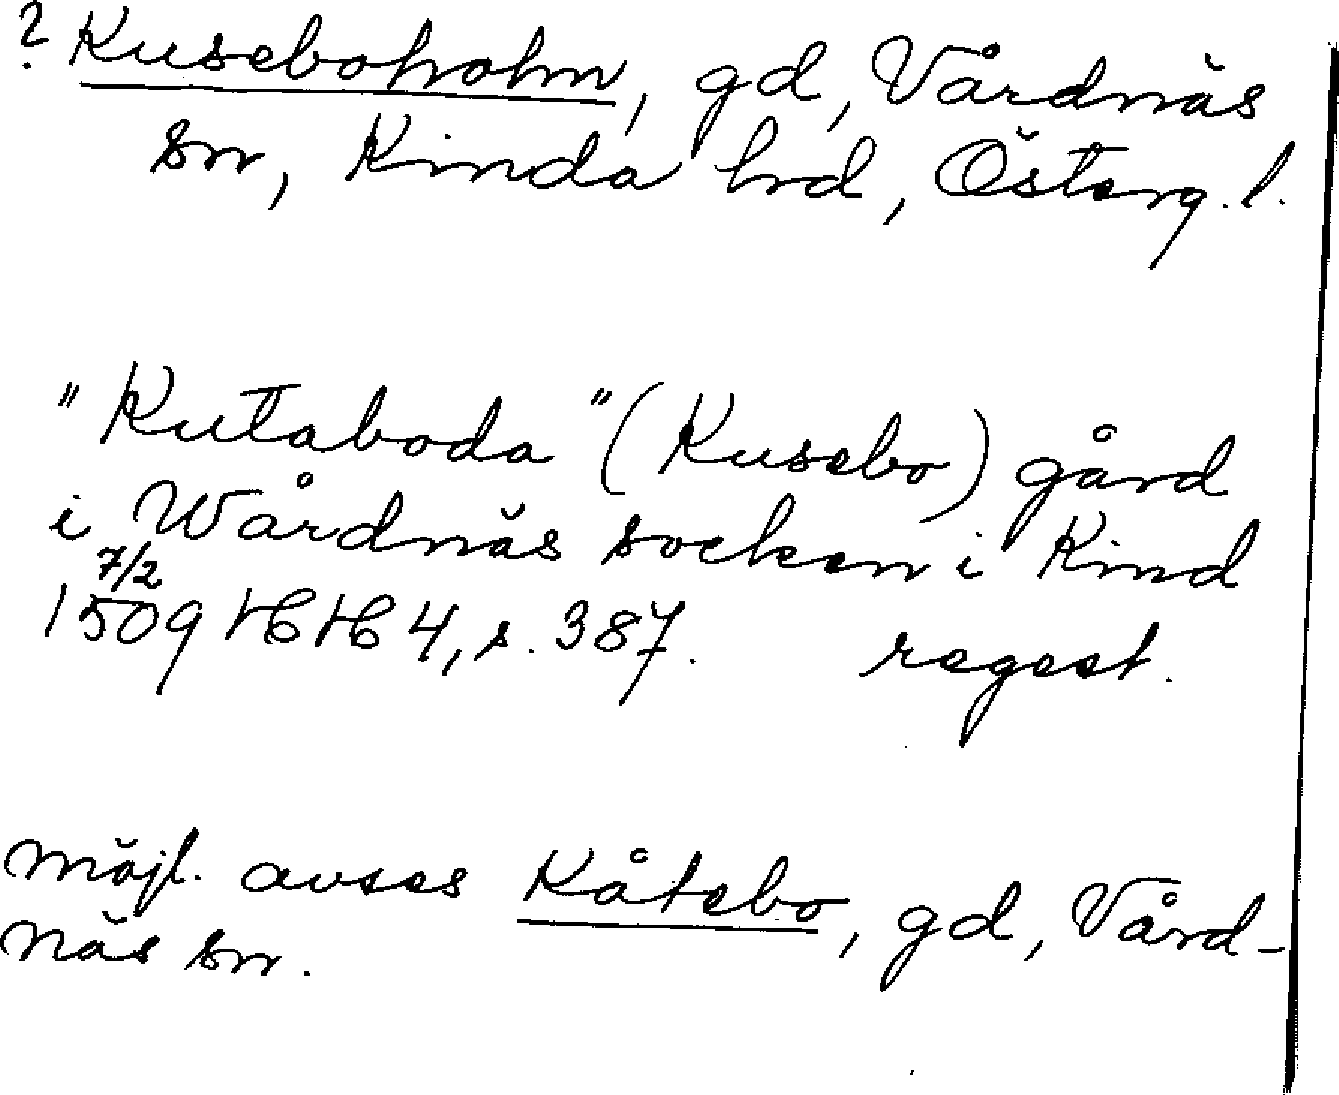 ? Kuseboholm, gd, Vårdnäs
sn, Kinda hd, Österg. l.
"Kutaboda" (Kusebo) gård
i Wårdnäs socken i Kind
7/2
1509 HH 4, s. 387. regest.
möjl. avses Kåtebo, gd, Vård-
näs sn.